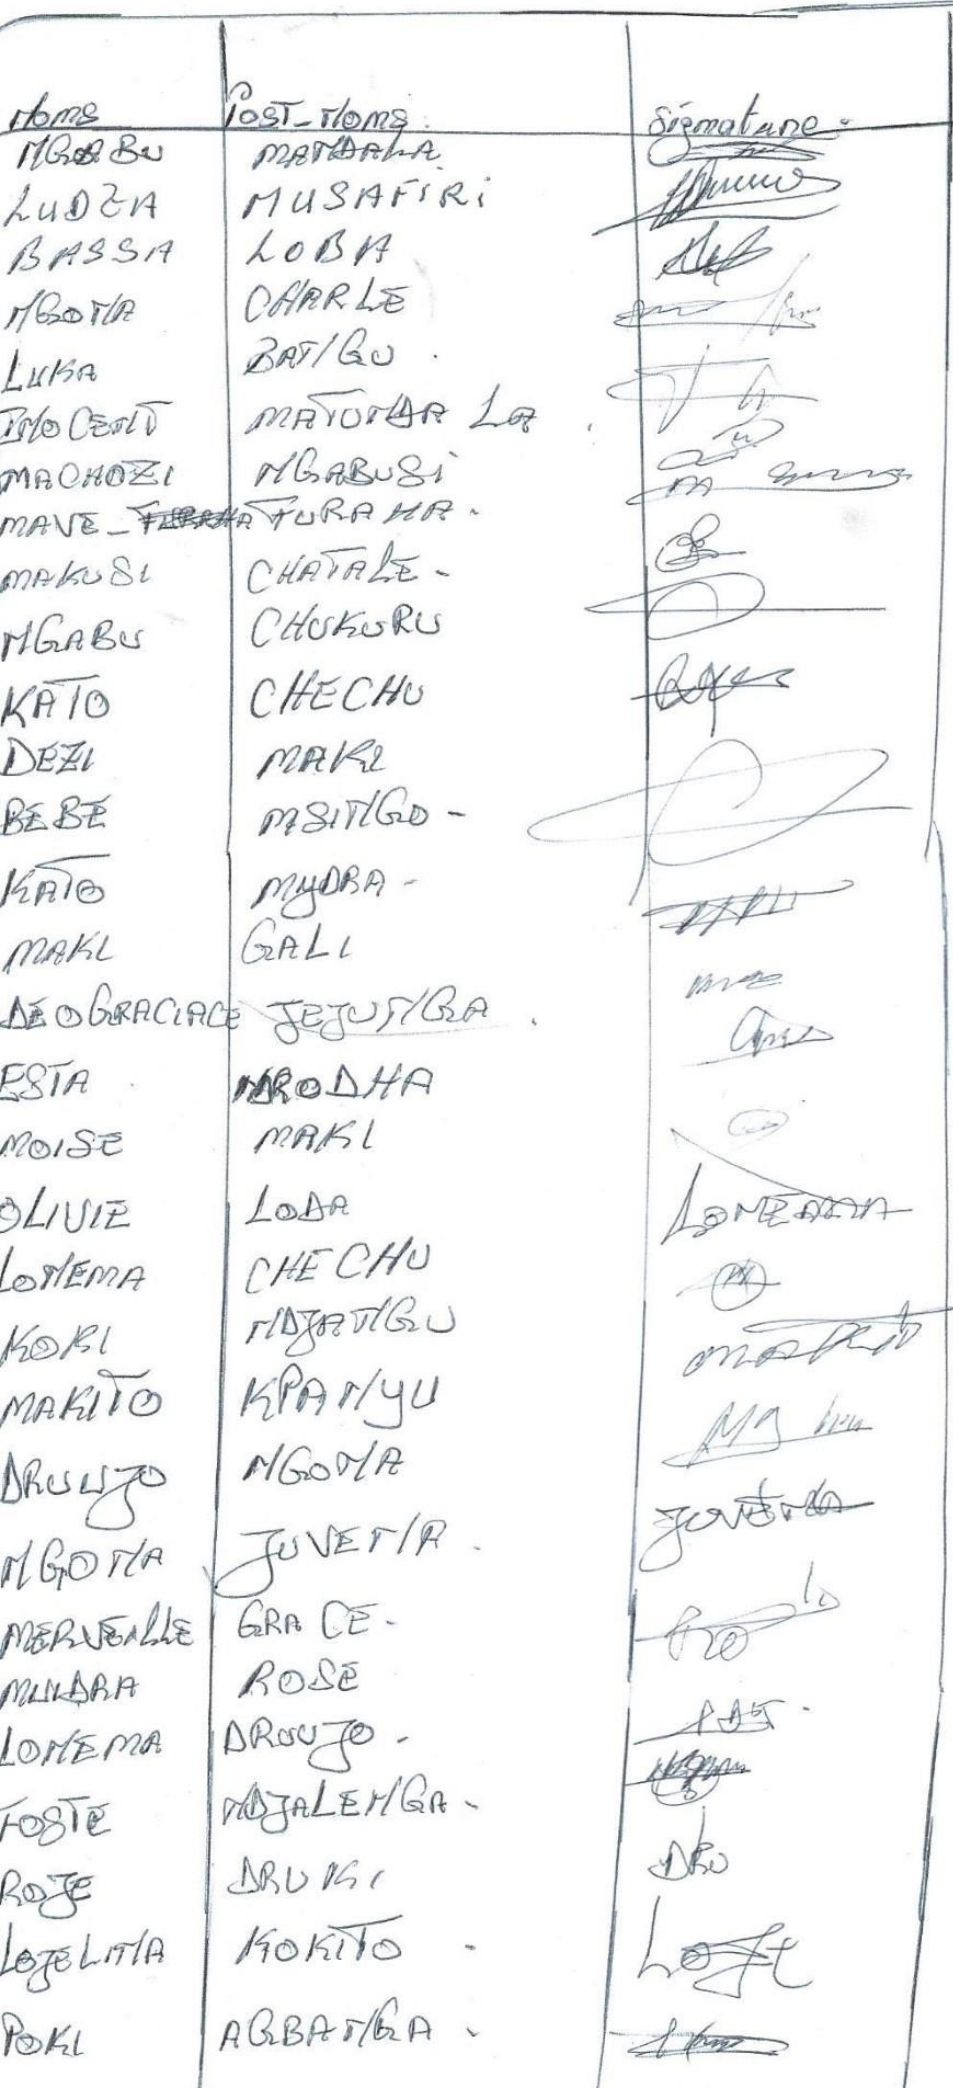 Noms Post-Noms. Signature.
NGABU MANDALA
LUDZA MUSAFIRI
BASSA LOBA
NGONA CHARLE
LUKA BATNGU.
INOCENT MATUNDA LA
MACHOZI NGABUSI
MAVE - FURAHA.
MAKUSI CHATALE-
NGABU CHUKURU
KATO CHECHU
DEZI MAKI
BEBE MSINGO-
KATO MYDRA-
MAKI GALI
DEOGRACIACE JEJUNGA.
ESTA NRODHA
MOISE MAKI
OLIVIE LODA LONEMA
LONEMA CHECHU
KORI NDJANGU
MAKITO KPANYU
DRUUJO NGONA
NGONA JUVENA. JUVENA
MERVEILLE GRACE-
MUUDRA ROSE
LONEMA DRUUJO-
FOSTE NDJALENGA-
ROJE DRUKI DRU
LOJELINA KOKITO-
POKI AGBANGA-